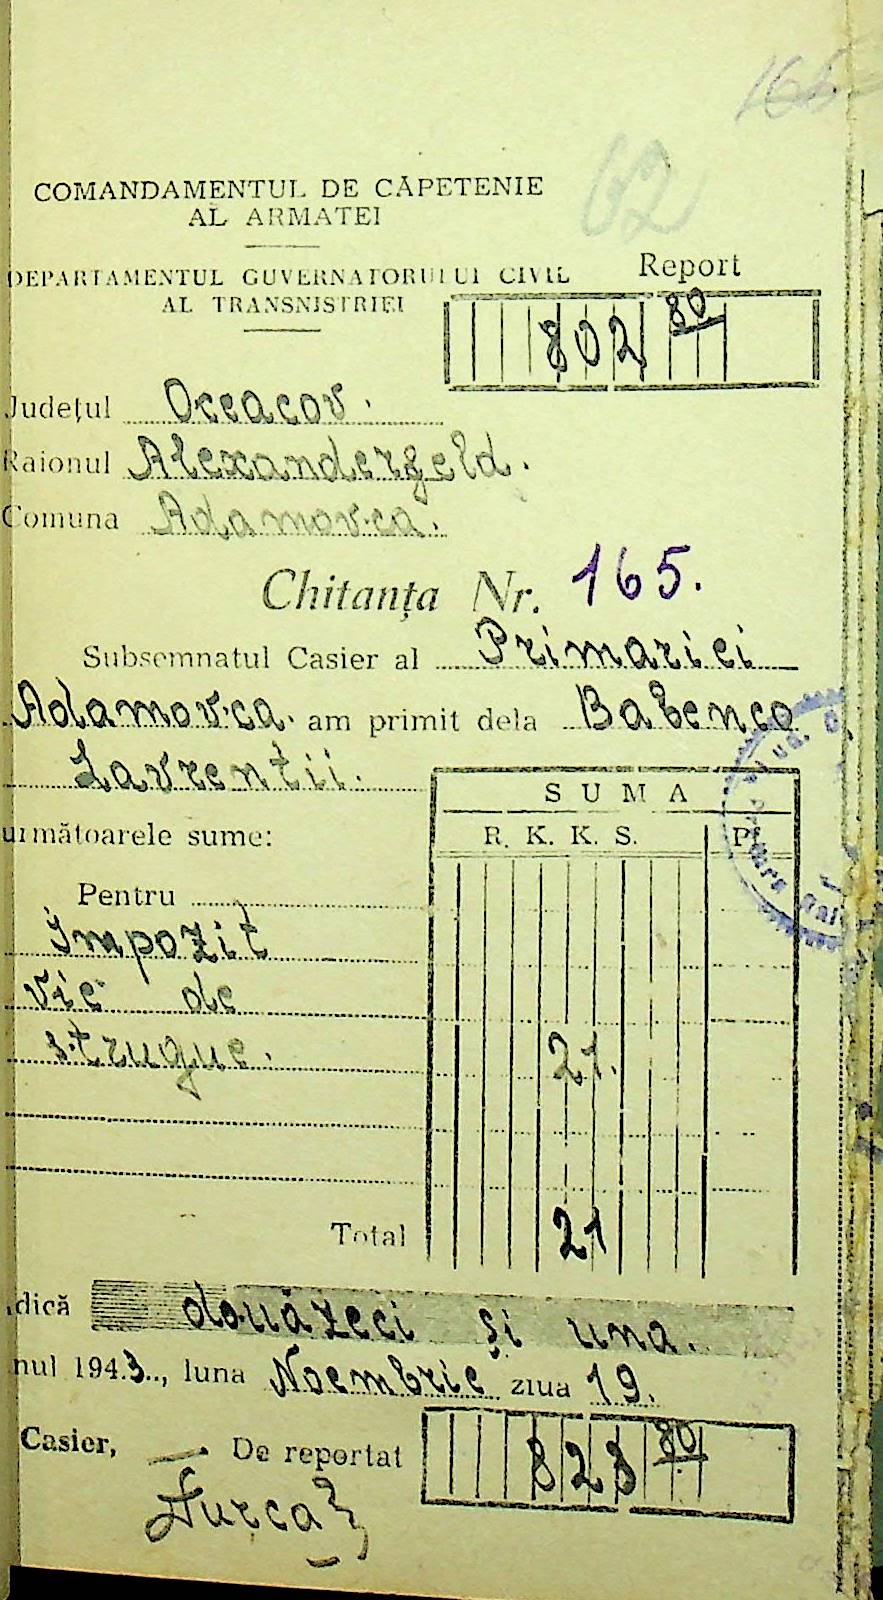 165
62
COMANDAMENTUL DE CĂPETENIE
AL ARMATEI
DEPARTAMENTUL GUVERNATORULUI CIVIL
AL TRANSNISTRIEI
Report
802 80
Județul Oceacov.
Raionul Alexanderfeld.
Comuna Adamovca.
Chitanța Nr. 165.
Subsemnatul Casier al Primariei
Adamovca. am primit dela Babenco
Lavrentii.
următoarele sume:
SUMA
R. K. K. S.
Pentru
Impozit
vie de
strugue. 21.
Total 21
dică douăzeci și una.
nul 1943.., luna Noembrie ziua 19.
Casier, De reportat 823 80
Țurca